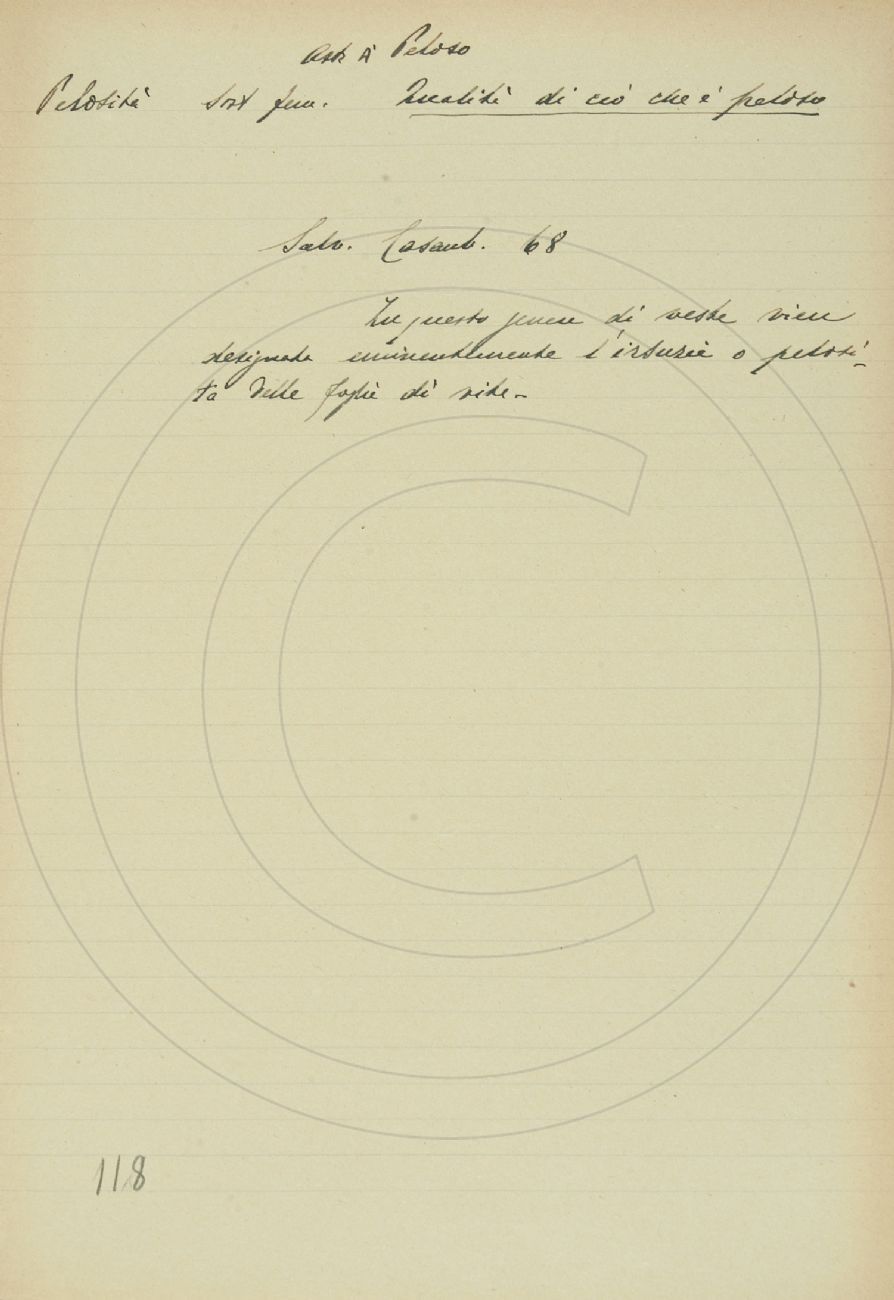 Astr. di Peloso
Pelosità Sost fem. Qualità di ciò che è peloso
Salv. Casaub. 68
In questo genere di veste vien
designata eminentemente l'irsuzie o pelosi-
tà delle foglie di vite.
118